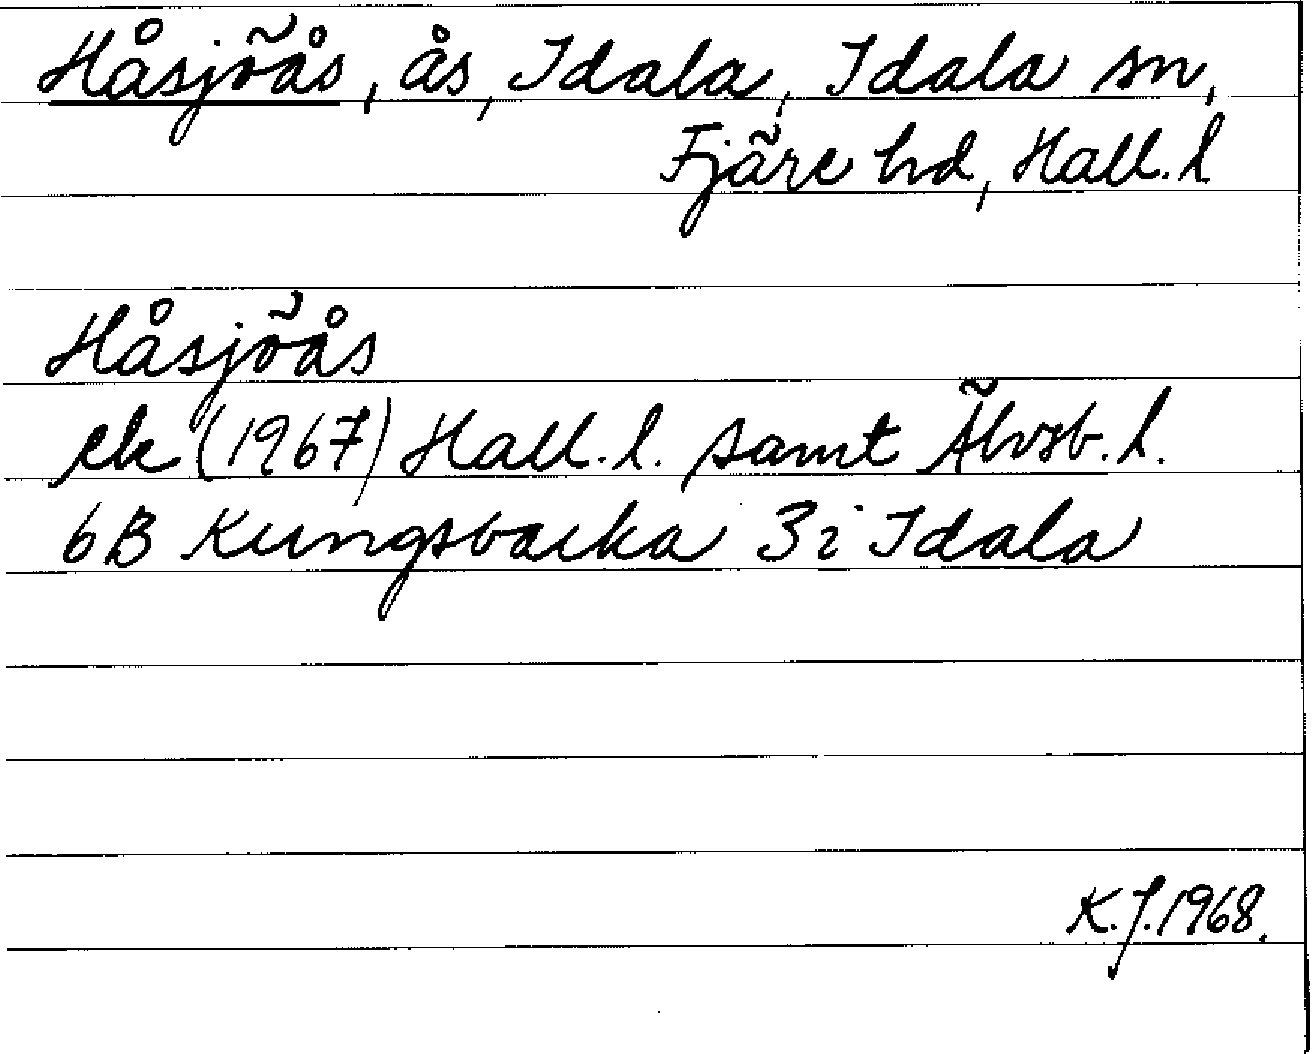 Håsjöås, ås, Idala, Idala sn,
Fjäre hd, Hall. l
Håsjöås
ek (1967) Hall. l. samt Älvsb. l.
6B Kungsbacka 3i Idala
K.J. 1968.